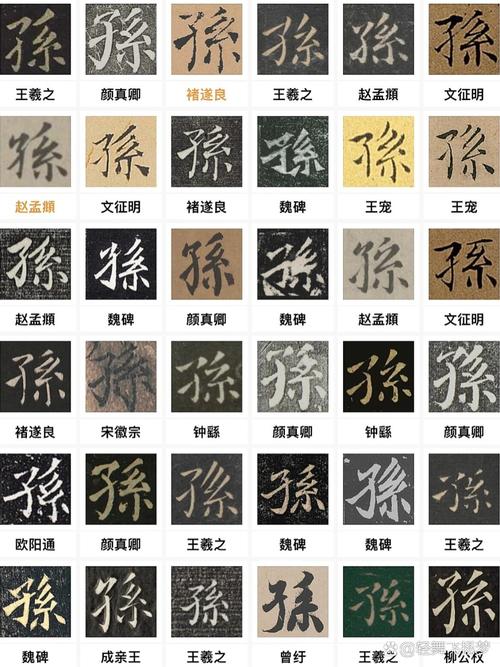 孫 孫 孫 孫 孫 孫
王羲之 颜真卿 褚遂良 王羲之 赵孟頫 文征明
孫 孫 孫 孫 孫 孫
赵孟頫 文征明 褚遂良 魏碑 王宠 王宠
孫 孫 孫 孫 孫 孫
赵孟頫 魏碑 颜真卿 魏碑 赵孟頫 文征明
孫 孫 孫 孫 孫 孫
褚遂良 宋徽宗 钟繇 颜真卿 钟繇 颜真卿
孫 孫 孫 孫 孫 孫
欧阳通 颜真卿 王羲之 魏碑 魏碑 王羲之
孫 孫 孫 孫 孫 孫
魏碑 成亲王 王羲之 曾纡 王羲之 柳公权